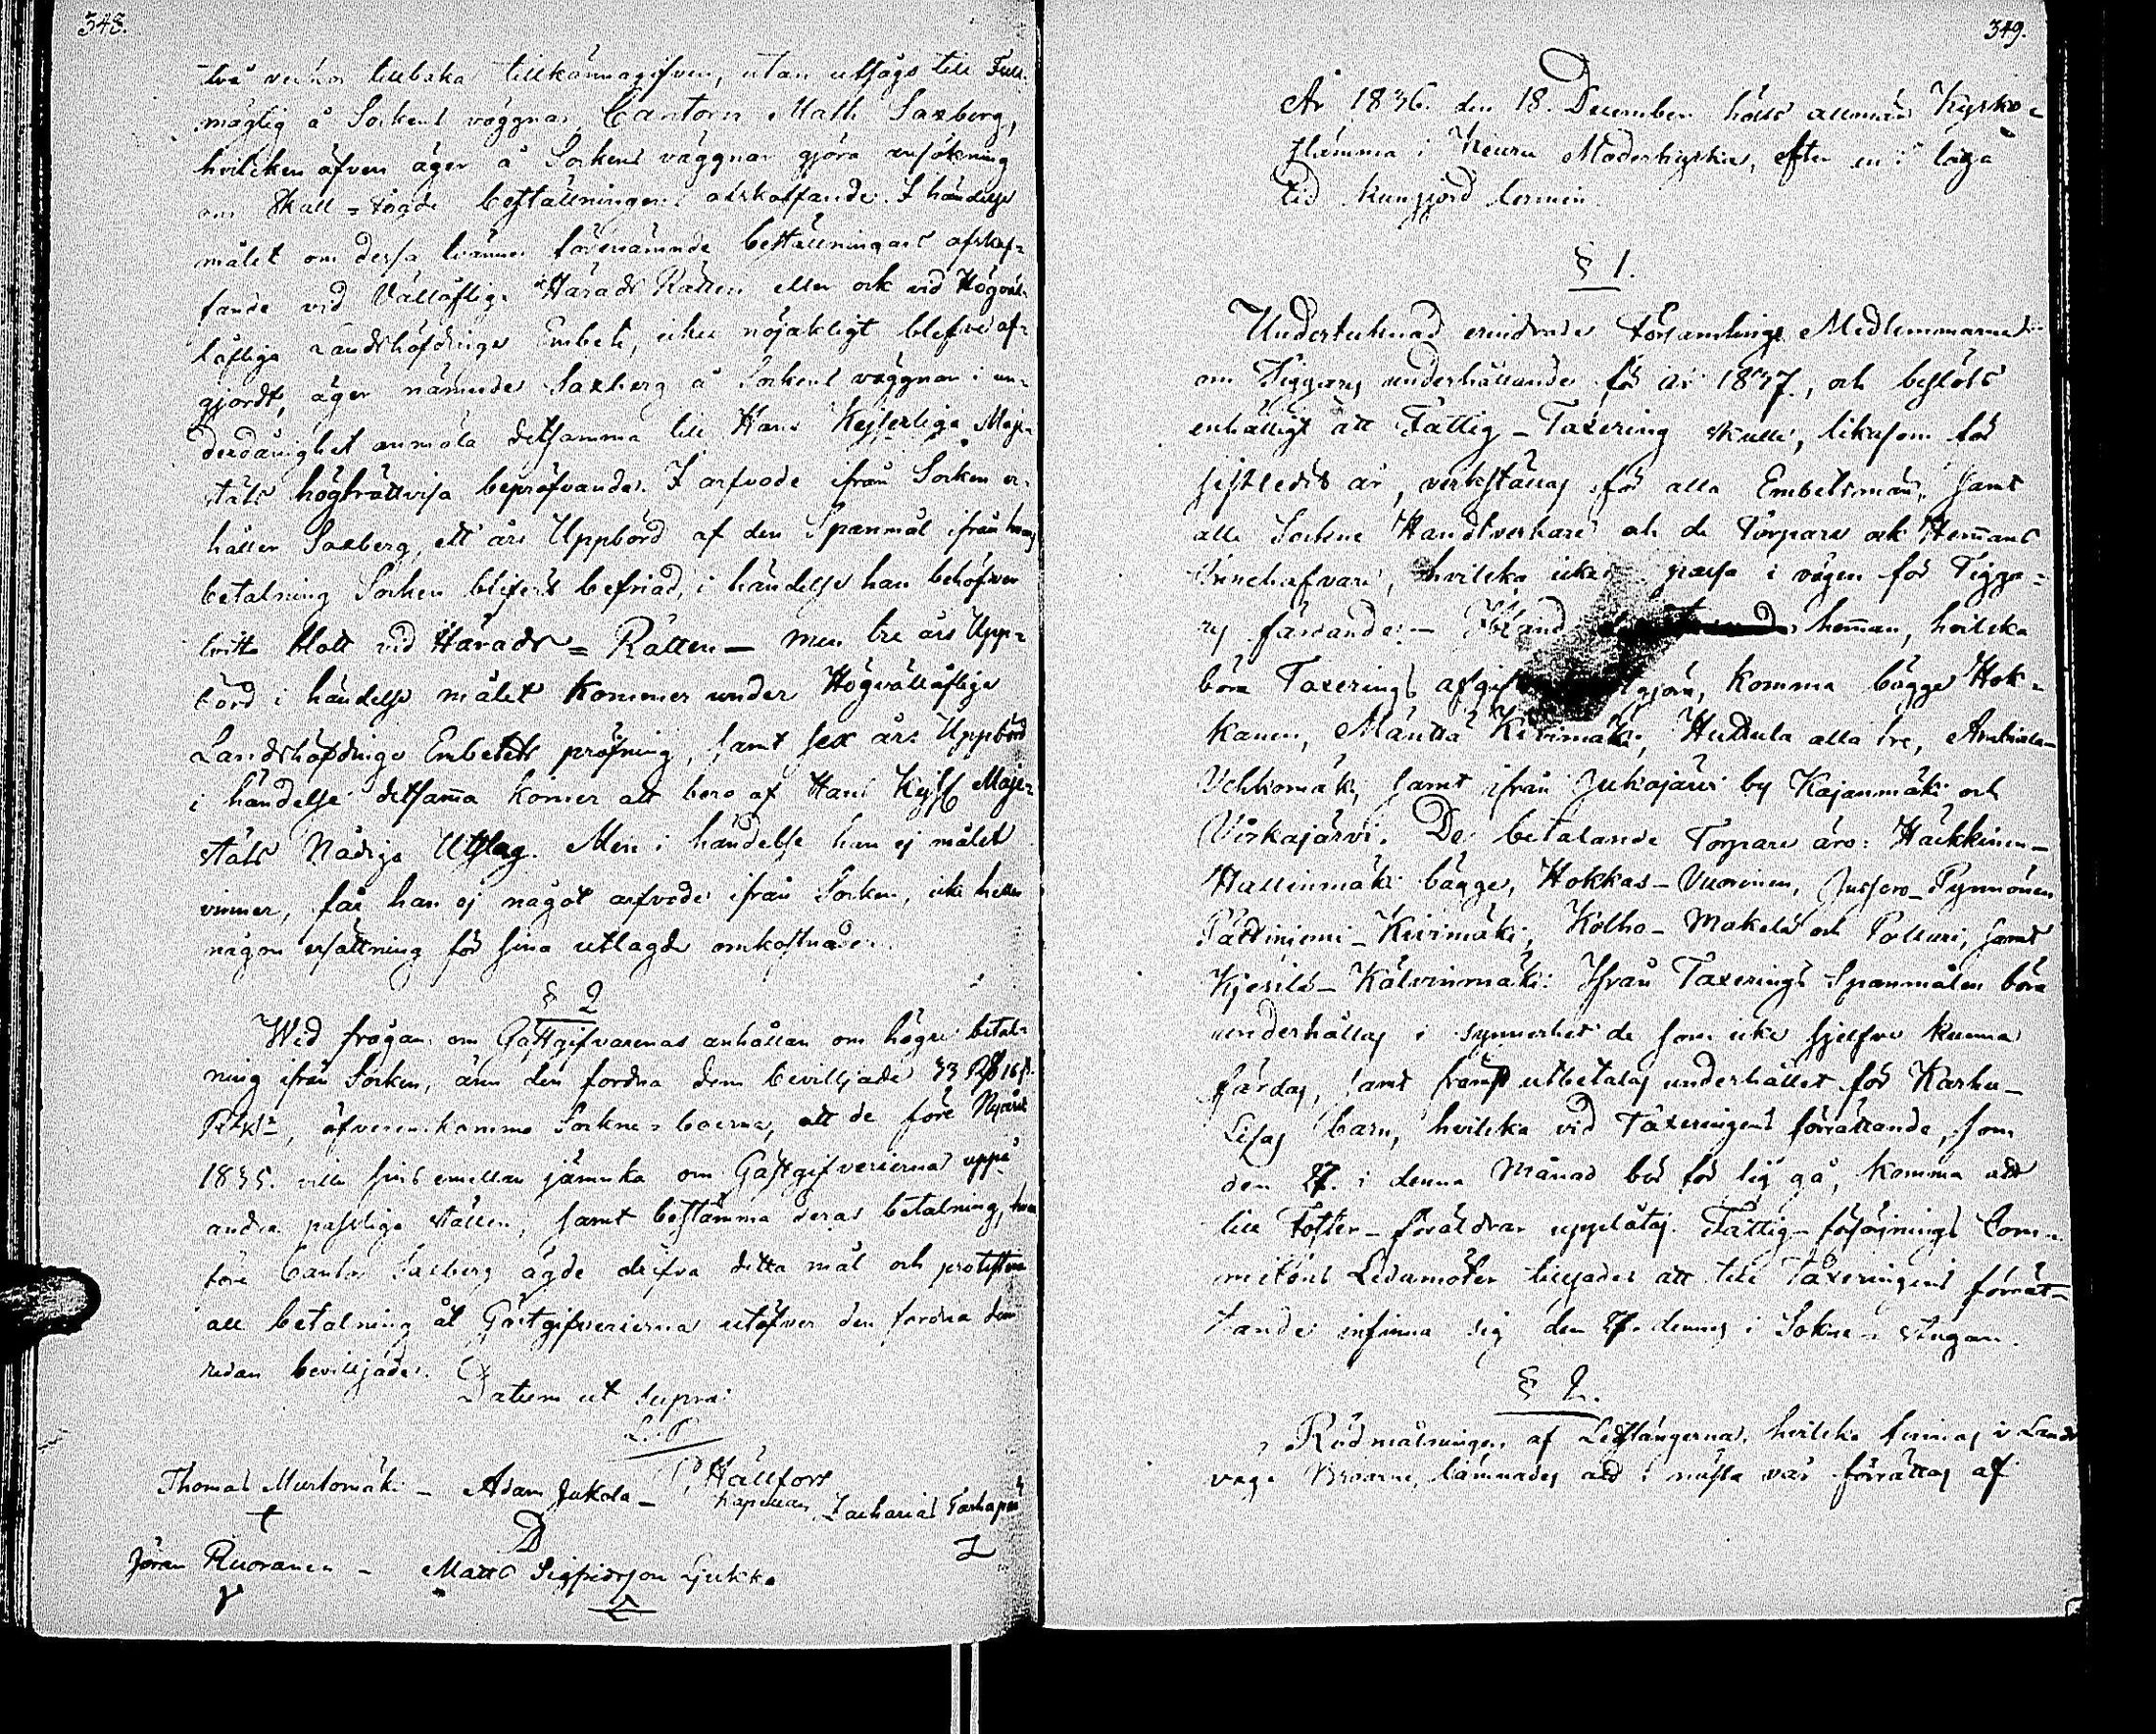 348.
två veckor tillbaka tillkännagifven, utan utsågs till Full-
mägtig å Sockens väggnar Cantorn Math Saxberg,
hvilcken äfven äger å Sockens väggnar gjöra ansökning
om Skall=fogde beställningens afskaffande. I händelse
målet om dessa tvänne förenämnde beställningars afskaf=
fande vid Vällofliga Härads Rätten eller ock vid Högväl=
lofliga Landshöfdinge Embete, icke nöjaktigt blefve af=
gjordt, äger nämnde Saxberg å Sockens väggnar i un=
derdånighet anmäla detsamma till Hans Kejserliga Maje=
stäts högträttvisa bepröfvande. I arfvode ifrån Socken er=
håller Saxberg, ett års Uppbörd af den Spanmål ifrån hvars
betalning Socken blifvit befriad, i händelse han behöfver
tvitta blott vid Härads=Rätten — men tre års Upp=
börd i händelse målet kommer under Högvällofliga
Landshöfdinge Embetets pröfning, samt sex års Uppbörd
i händelse detsam̄a kom̄er att bero af Hans Kejs Maje=
stäts Nådiga Utslag. Men i händelse han ej målet
vinner, får han ej något arfvode ifrån Socken, icke heller
någon ersättning för sina utlagde omkostnader.
§ 2
Wid frågan om Gästgifvarenas anhållan om högre betal=
ning ifrån Socken, änn den fordna dem bevilljade 33 Rb 16
, öfverenskommo Sockne=boerna, att de före Nyåret
1835. ville sins emellan jämnka om Gästgifverierna uppå
andra passliga ställen, samt bestämma deras betalning, hvar
före Cantor Saxberg ägde drifva detta mål och protestera
all betalning åt Gästgifverierna utöfver den fordna dem
redan bevilljade. Datum ut supra.
L. P.
P. Hällfors
Kapellan
Thomas Murtomäki — Adam Jukola — Zacharias Tarhapää
Jöran Ruoranen — Matts Sigfridsson Ljukko
349.
År 1836. den 18. December hölls allmän Kyrko=
stämma i Keuru Moderkyrka, efter en i laga
tid kungjord termin.
§ 1.
Undertecknad erindrade Församlings Medlemmarne
om Tiggares underhållande för år 1837., och beslöts
enhälligt att Fattig-Taxering skulle, likasom för
sistledit år, verkställas för alla Embetsmän, samt
alla Sockne Handtverkare och de Torpare och Hem̄ans
Innehafvare, hvilcka icke passa i vägen för Tigga=
res färdande. — Ibland hem̄an, hvilcka
böra Taxerings afgift gjöra, komma bägge Hok=
kanen, Mänttä Kivimäki, Huttula alla tre,
Vehkomäki, samt ifrån Jukojärvi by Kajanmäki och
Virkajärvi. De betalande Torpare äro: Häkkinen-
Hallinmäki bägge, Hokkas-Vuorinen, Jussero-Pynnönen
Pättiniemi-Kivimäki, Kolho-Makelä och Polluri, samt
Kälvinmäki. Ifrån Taxerings Spanmålen böra
underhållas i synnerhet de som icke sjelfve kunna
färdas, samt främst utbetalas underhållet för Karhu-
Lisas barn, hvilcka vid Taxeringens förrättande, som
den 27. i denna Månad bör för sig gå, komma att
till Foster-föräldrar upplåtas. Fattig-försörjnings Com=
mitéens Ledamöter tillsades att till Taxeringens förrät=
tande infinna sig den 27. dennes i Sockne Stugan.
§ 2.
Rödmålningen af Ledstängerna, hvilcka finnas i Lands
vägs Broarne, lämnades att i nästa vår förrättas af